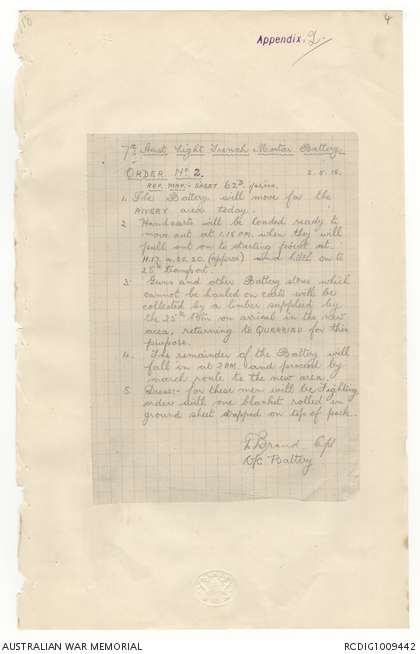 Appendix. 2.
4
7th Aust Light Trench Mortar Battery.
ORDER No 2. 2.5.18.
REF. MAP:- SHEET 62D France.
1. The Battery will move for the
RIVERY area today.
2 Handcarts will be loaded ready to
move out at 1.15 PM. when they will
pull out on to starting point at
(approx) and hitch on to
25th transport.
3. Guns and other Battery store which
cannot be hauled on carts will be
collected by a limber supplied by
the 25th Bn. on arrival in the new
area, returning to QUERRIEU for this
purpose.
4. The remainder of the Battery will
fall in at 2 PM. and proceed by
march route to the new area.
5 Dress:- for these men will be Fighting
order with one blanket rolled in
ground sheet strapped on top of pack.
Brand Capt
O/C Battery
AUSTRALIAN WAR MEMORIAL
RCDIG1009442